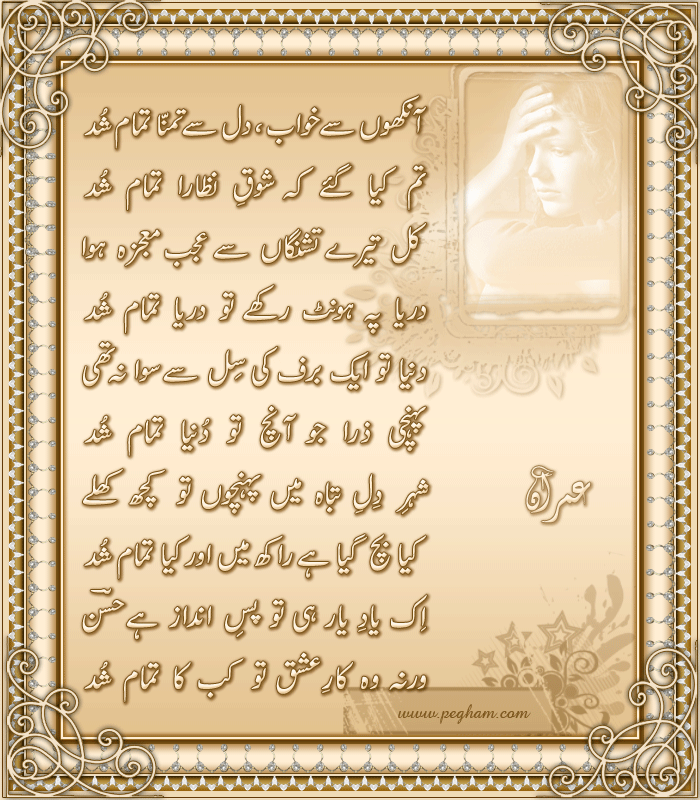 آنکھوں سے خواب، دل سے تمنّا تمام شُد
تم کیا گئے کہ شوقِ نظارا تمام شُد
کل تیرے تشنگاں سے عجب معجزہ ہوا
دریا پہ ہونٹ رکھے تو دریا تمام شُد
دنیا تو ایک برف کی سِل سے سوا نہ تھی
پہنچی ذرا جو آنچ تو دُنیا تمام شُد
شہرِ دِلِ تباہ میں پہنچوں تو کچھ کھلے
کیا بچ گیا ہے راکھ میں اور کیا تمام شُد
اِک یادِ یار ہی تو پسِ انداز ہے حسنؔ
ورنہ وہ کارِ عشق تو کب کا تمام شُد
www.pegham.com